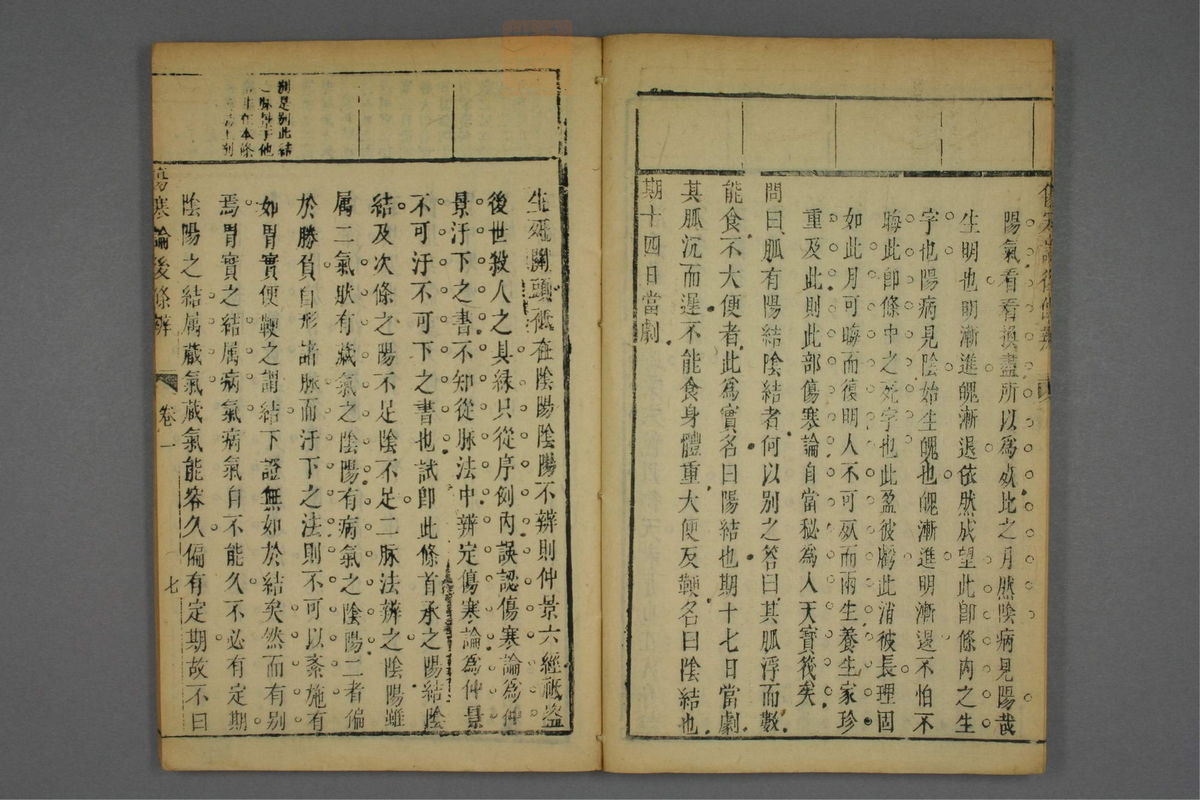 陽氣看看換盡所以為死比之月然陰病見陽哉
生明也明漸進魄漸退依然成望此卽條內之生
字也陽病見陰始生魄也魄漸進明漸退不怕不
晦此卽條中之死字也此盈彼虧此消彼長理固
如此月可晦而復明人不可死而兩生養生家珍
重及此則此部傷寒論自當秘為人天寶筏矣
問曰脈有陽結陰結者何以別之答曰其脈浮而數
能食不大便者此爲實名曰陽結也期十七日當劇
其脈沉而遲不能食身體重大便反鞕名曰陰結也
期十四日當劇
生死關頭秪在陰陽陰陽不辨則仲景六經秪盜
後世殺人之具緣只從序例內誤認傷寒論為仲
景汗下之書不知從脈法中辨定傷寒論為仲景
不可汗不可下之書也試卽此條首承之陽結陰
結及次條之陽不足陰不足二脈法辨之陰陽雖
属二氣狀有藏氣之陰陽有病氣之陰陽二者偏
於勝負自形諸脈而汗下之法則不可以紊施有
如胃實便鞕之謂結下證無如於結矣然而有別
焉胃實之結属病氣病氣自不能久不必有定期
陰陽之結属藏氣藏氣能容久偏有定期故不曰
別是別此結
傷寒論後條辨
卷一
七